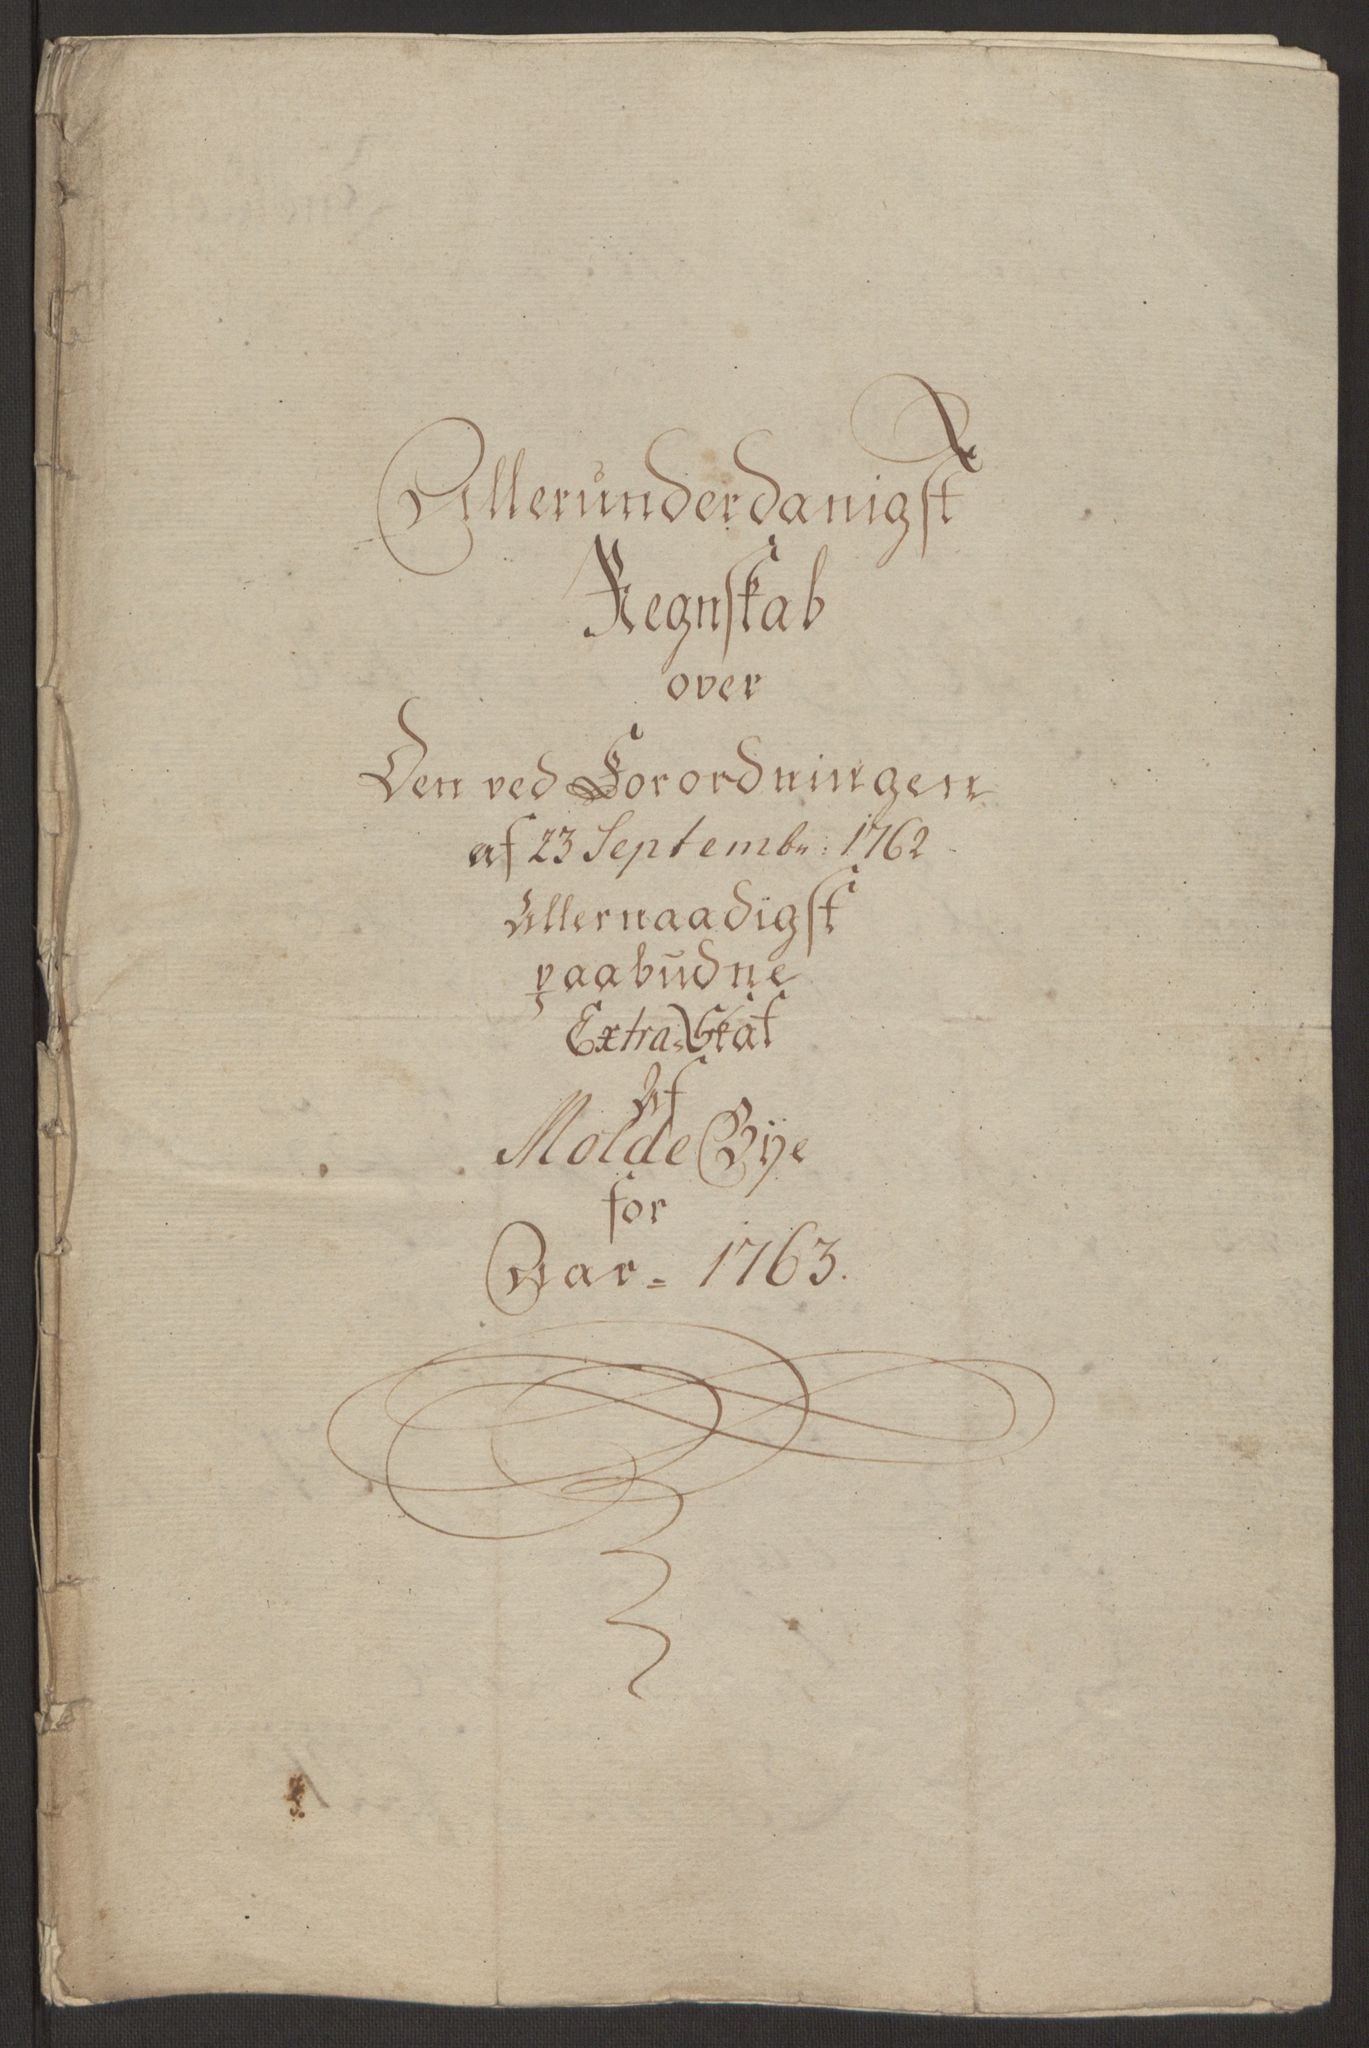 Allerunderdanigst
Regnskab
over
Den ved Forordningen
af 23 Septembr: 1762
Allernaadigst
paabudne
Extra-Skat
Af
Molde Bÿe
for
Aar = 1763.